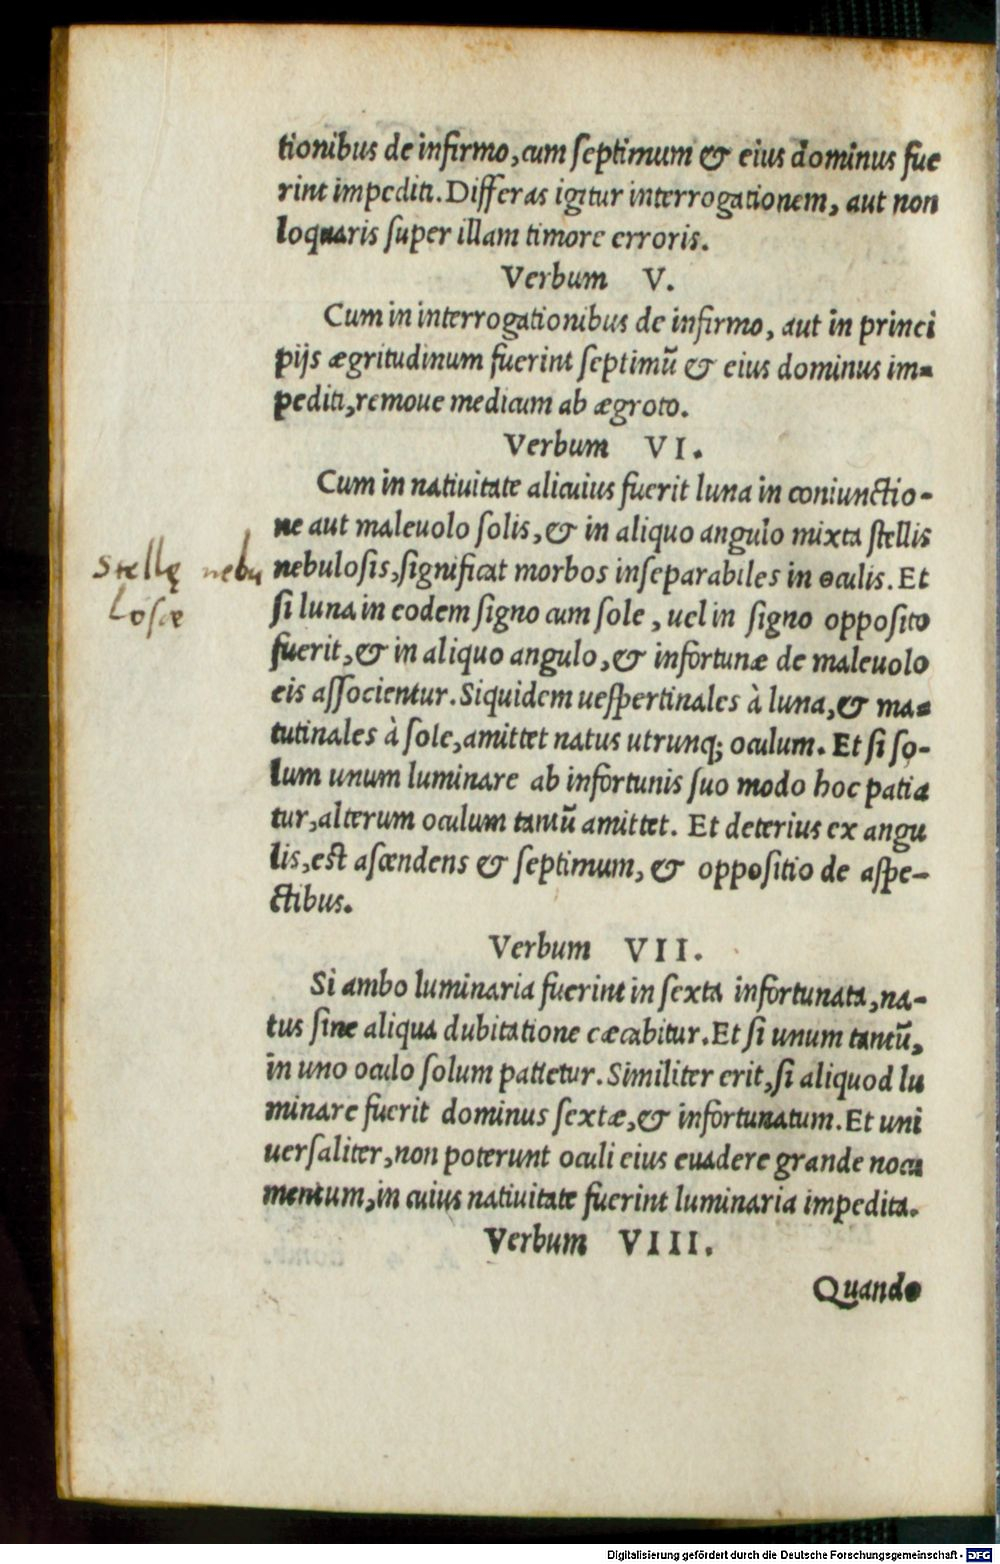 tionibus de infirmo, cum septimum & eius dominus fue
rint impediti. Differas igitur interrogationem, aut non
loquaris super illam timore erroris.
Verbum V.
Cum in interrogationibus de infirmo, aut in princi
pijs ægritudinum fuerint septimũ & eius dominus im-
pediti, remoue medicum ab ægroto.
Verbum VI.
Cum in natiuitate alicuius fuerit luna in coniunctio-
ne aut maleuolo solis, & in aliquo angulo mixta stellis
nebulosis, significat morbos inseparabiles in oculis. Et
si luna in eodem signo cum sole, uel in signo opposito
fuerit, & in aliquo angulo, & infortunæ de maleuolo
eis associentur. Siquidem uespertinales à luna, & ma-
tutinales à sole, amittet natus utrunq; oculum. Et si so-
lum unum luminare ab infortunis suo modo hoc patia
tur, alterum oculum tantũ amittet. Et deterius ex angu
lis, est ascendens & septimum, & oppositio de aspe-
ctibus.
Verbum VII.
Si ambo luminaria fuerint in sexta infortunata, na-
tus sine aliqua dubitatione cæcabitur. Et si unum tantũ,
in uno oculo solum patietur. Similiter erit, si aliquod lu
minare fuerit dominus sextæ, & infortunatum. Et uni
uersaliter, non poterunt oculi eius euadere grande nocu
mentum, in cuius natiuitate fuerint luminaria impedita.
Verbum VIII.
Quando
Stellę nebu
losæ
Digitalisierung gefördert durch die Deutsche Forschungsgemeinschaft - DFG